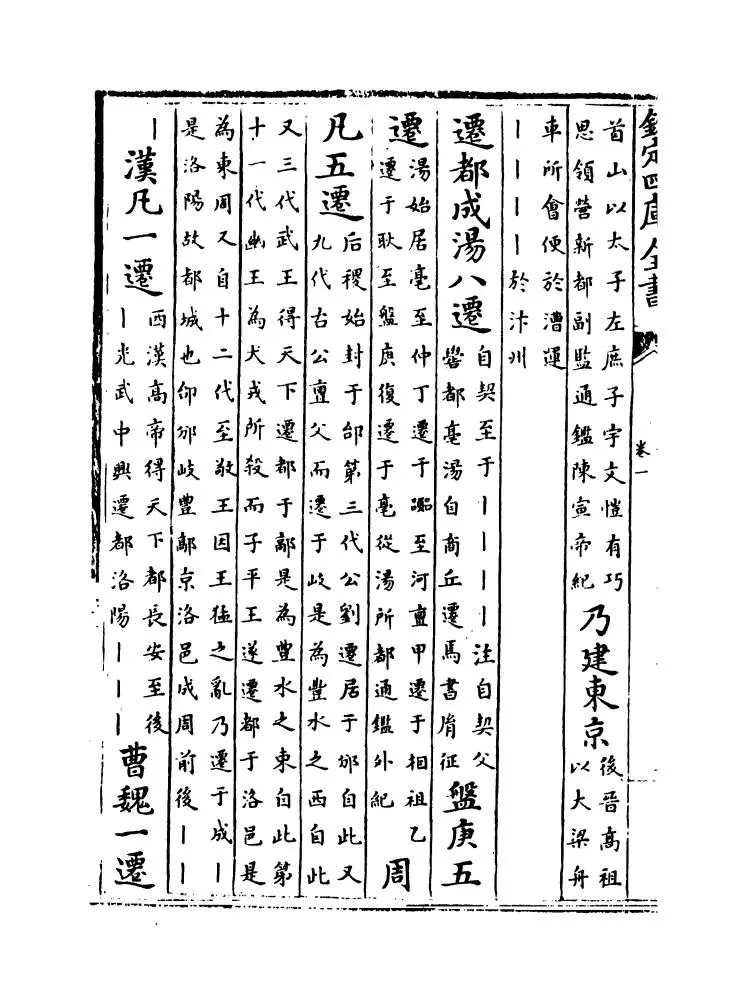 欽定四庫全書
卷一
首山以太子左庶子宇文愷有巧
思領營新都副監通鑑陳宣帝紀
乃建東京
後晉高祖
以大梁舟
車所會便於漕運
丨丨丨丨於汴州
遷都成湯八遷
自契至于丨丨丨丨注自契父
嚳都亳湯自商丘遷焉書胤征
盤庚五
遷
湯始居亳至仲丁遷于嚻至河亶甲遷于相祖乙
遷于耿至盤庚復遷于亳從湯所都通鑑外紀
周
凡五遷
后稷始封于邰第三代公劉遷居于邠自此又
九代古公亶父而遷于岐是為豐水之西自此
又三代武王得天下遷都于鄗是為豐水之東自此第
十一代幽王為犬戎所殺而子平王遂遷都于洛邑是
為東周又自十二代至敬王因王猛之亂乃遷于成丨
是洛陽故都城也仰邠岐豊鄗京洛邑成周前後丨丨
丨
漢凡一遷
西漢高帝得天下都長安至後
丨光武中興遷都洛陽丨丨丨
曹魏一遷